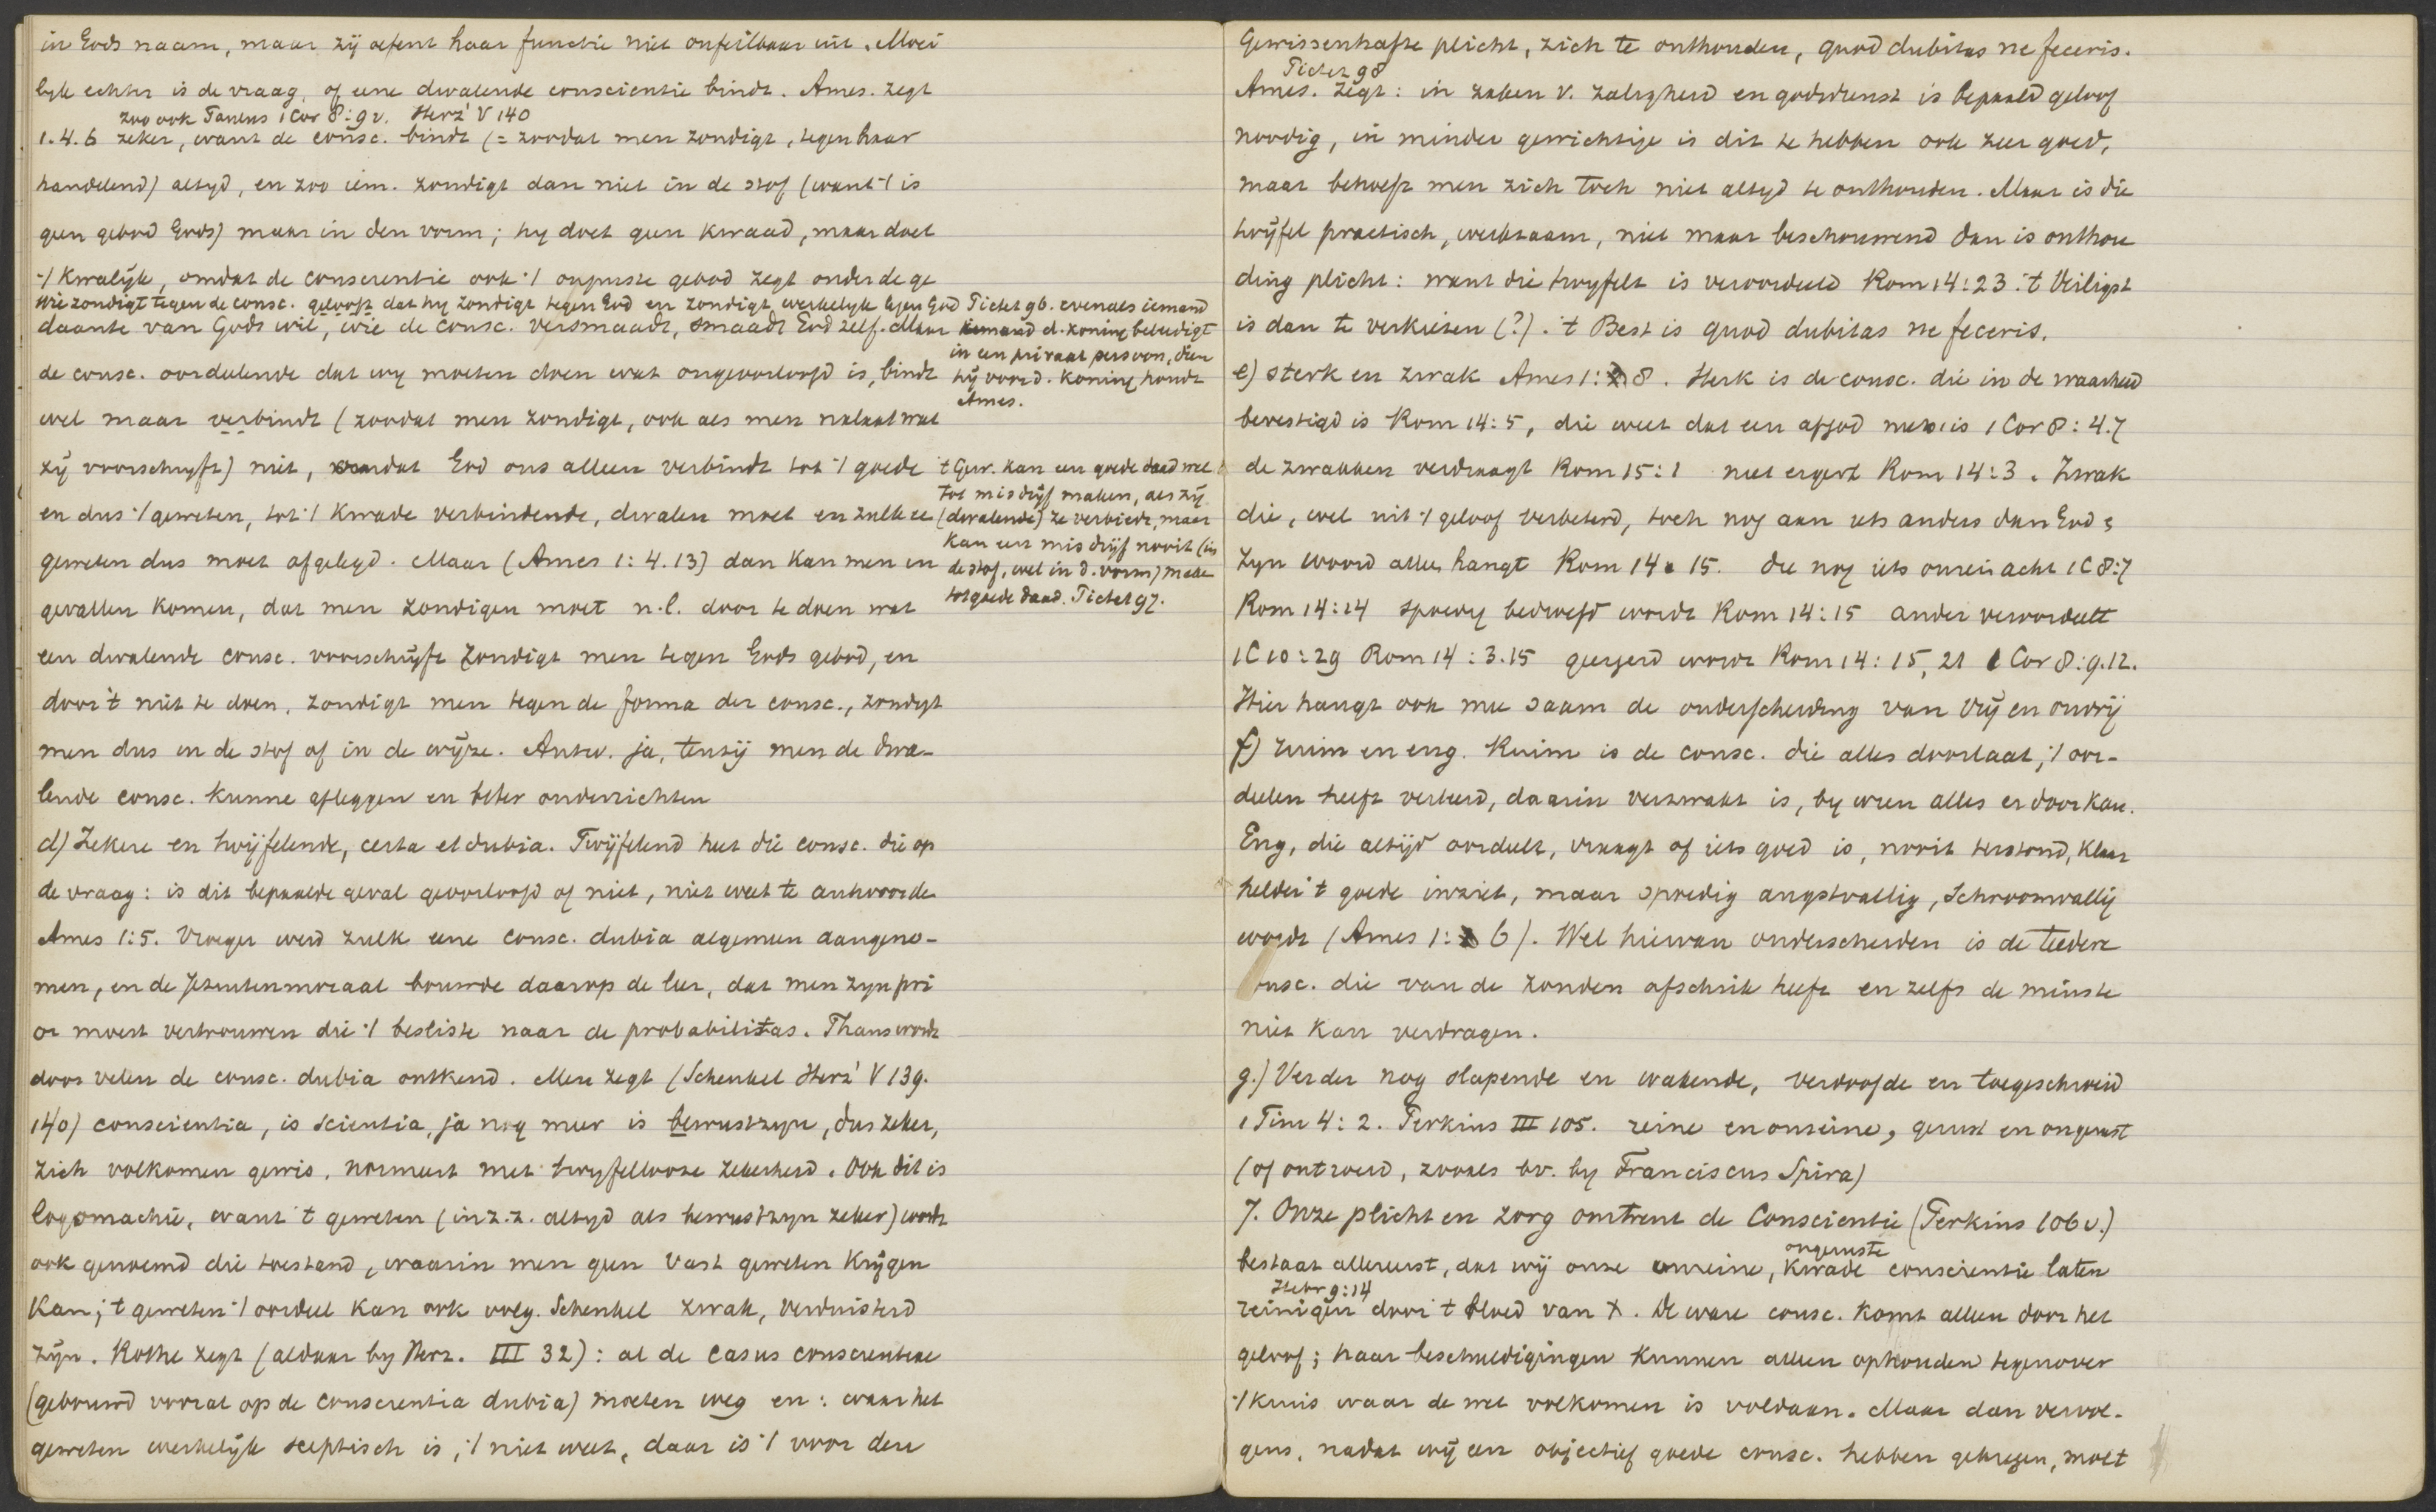 in Gods naam, maar zij oefent haar functie niet onfeilbaar uit. Moei
lyk echter is de vraag, of eene dwalende conscientie bindt. Ames. zegt
zoo ook Paulus 1 Cor 8:9 v. Herz' V 140
1.4.6 zeker, want de consc. bindt (= zoodat men zondigt, tegen haar
handelend) altyd, en zoo iem. zondigt dan niet in de stof (want 't is
geen gebod Gods) maar in den vorm; hy doet geen kwaad, maar doet
't kwalijk, omdat de conscientie ook 't onjuiste gebod zegt onder de ge
Wie zondigt tegen de consc. gelooft dat hy zondigt tegen God en zondigt werkelyk tegen God Pictet 96. evenals iemand
daante van Gods wil, wie de consc. versmaadt, smaadt God zelf. Maar
d. koning beleedigt
in een privaat persoon, dien
hij voor d. koning houdt
Ames.
de consc. oordeelende dat wy moeten doen wat ongeoorloofd is, bindt
wel maar verbindt (zoodat men zondigt, ook als men nalaat wat
zij voorschryft) niet, omdat God ons alleen verbindt tot 't goede
en dus 't geweten, tot 't kwade verbindende, dwalen moet en zulk ee
geweten dus moet afgelegd. Maar (Ames 1:4.13) dan kan men in
gevallen komen, dat men zondigen moet n.l. door te doen wat
't Gew. kan een goede daad wel
tot misdrijf maken, als zij
(dwalende) ze verbiedt, maar
kan een misdrijf nooit (in
de stof, wel in d. vorm) make
tot goede daad. Pictet 97.
een dwalende consc. voorschrijft zondigt men tegen Gods gebod, en
door 't niet te doen, zondigt men tegen de forma der consc., zondigt
men dus in de stof of in de wijze. Antw. ja, tenzij men de dwa-
lende consc. kunne afleggen en beter onderrichten
d) Zekere en twijfelende, certa et dubia. Twijfelend heet die consc. die op
de vraag: is dit bepaalde geval geoorloofd of niet, niet weet te antwoorde
Ames 1:5. Vroeger werd zulk eene consc. dubia algemeen aangeno-
men, en de Jezuitenmoraal bouwde daarop de leer, dat men zyn pri
or moest vertrouwen die 't besliste naar de probabilitas. Thans wordt
door velen de consc. dubia ontkend. Men zegt (Schenkel Herz' V 139.
140) conscientia, is scientia, ja nog meer is bewustzyn, dus zeker,
zich volkomen gewis, normeert met twyfellooze zekerheid. Ook dit is
logomachie, want 't geweten (in z.z. altyd als bewustzyn zeker) wordt
ook genoemd die toestand, waarin men geen vast geweten krijgen
kan; 't geweten 't oordeel kan ook volg. Schenkel zwak, verduisterd
zijn. Rothe zegt (aldaar by Herz. III 32): al de casus conscientiae
(gebouwd vooral op de conscientia dubia) moeten weg en: waar het
geweten werkelijk sceptisch is, 't niet weet, daar is 't voor den
Gewissenhafte plicht, zich te onthouden, quod dubitas ne feceris.
Pictet 98
Ames. zegt: in zaken v. zaligheid en godsdienst is bepaald geloof
noodig, in minder gewichtige is dit te hebben ook zeer goed,
maar behoeft men zich toch niet altyd te onthouden. Maar is die
twijfel practisch, werkzaam, niet maar beschouwend dan is onthou
ding plicht: want die twyfelt is veroordeeld Rom 14:23. 't Veiligst
is dan te verkiezen (?). 't Best is quod dubitas ne feceris.
e) sterk en zwak Ames 1: 8. Sterk is de consc. die in de waarheid
bevestigd is Rom 14:5, die weet dat een afgod niets is 1 Cor 8:4.7
de zwakken verdraagt Rom 15:1 niet ergert Rom 14:3. Zwak
die, wel uit 't geloof verbeterd, toch nog aan iets anders dan God &
zyn woord alleen hangt Rom 14 15. die nog iets onrein acht 1 C 8:7
Rom 14:14 spoedig bedroefd wordt Rom 14:15 ander veroordeelt
1 C 10:29 Rom 14:3.15 geergerd wordt Rom 14:15, 21 1 Cor 8:9.12.
Hier hangt ook mee saam de onderscheiding van vrij en onvrij
f) ruim en eng. Ruim is de consc. die alles doorlaat, 't oor-
deelen heeft verleerd, daarin verzwakt is, by wien alles er door kan.
Eng, die altijd oordeelt, vraagt of iets goed is, nooit terstond, klaar
helder 't goede inziet, maar spoedig angstvallig, schroomvallig
wordt (Ames 1: 6). Wel hiervan onderscheiden is de teedere
onsc. die van de zonden afschrik heeft en zelfs de minste
niet kan verdragen.
g.) Verder nog slapende en wakende, verdoofde en toegeschroeid
1 Tim 4:2. Perkins III 105. reine en onreine, gerust en ongerust
(of ontroerd, zooals bv. by Franciscus Spira)
7. Onze plicht en zorg omtrent de Conscientie (Perkins 106 v.)
bestaat allereerst, dat wij onze onreine, ongeruste kwade conscientie laten
Hebr 9:14
reinigen door 't bloed van X. De ware consc. komt alleen door het
geloof; haar beschuldigingen kunnen alleen ophouden tegenover
't kruis waar de wet volkomen is voldaan. Maar dan vervol-
gens, nadat wij een objectief goede consc. hebben gekregen, moet